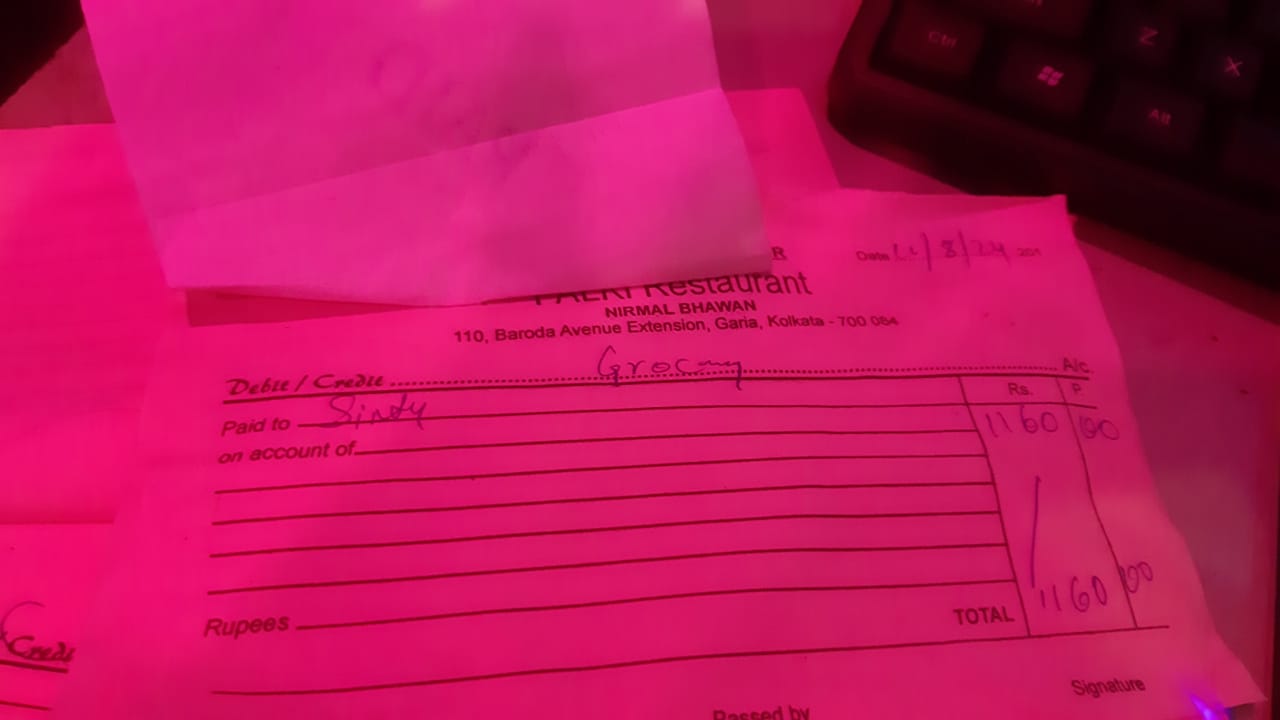 Ctrl
Z
X
Alt
R
Date 11/8/24 201
PALKI Restaurant
NIRMAL BHAWAN
110, Baroda Avenue Extension, Garia, Kolkata - 700 084
Debit / Credit Grocery A/c.
Rs. P.
Paid to Sindy 1160 00
on account of
Rupees TOTAL 1160 00
Credi
Signature
Passed by